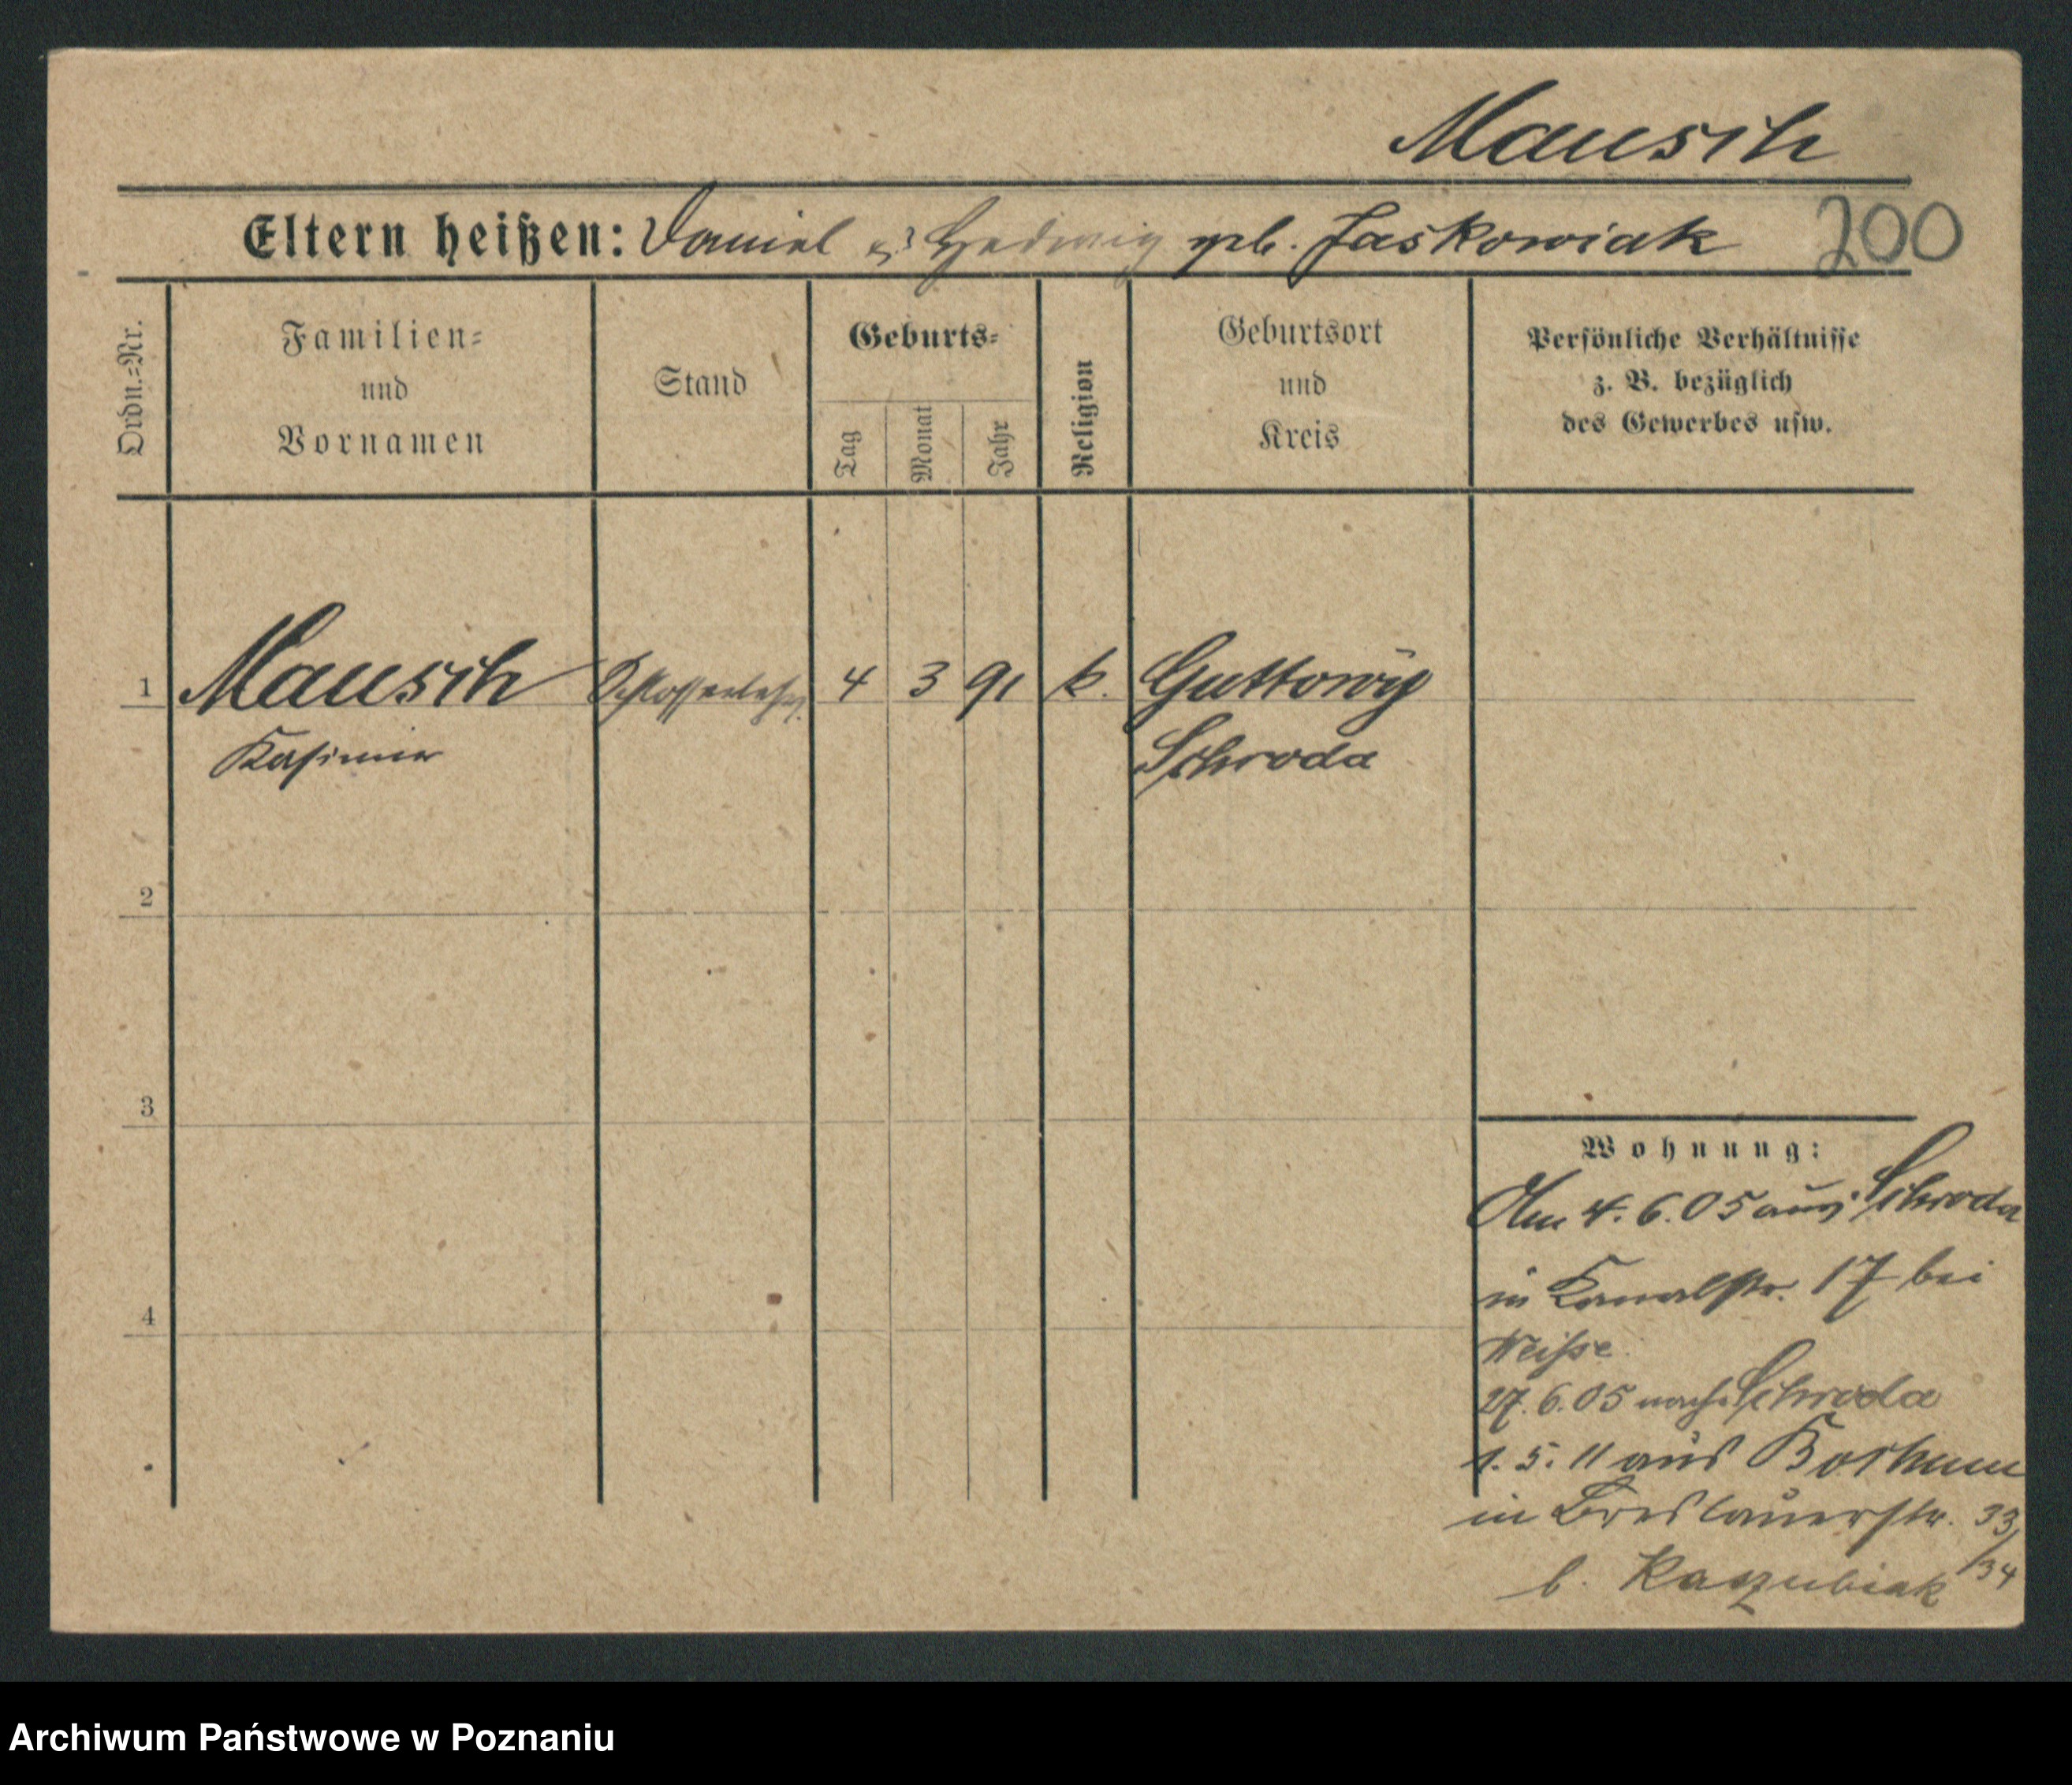 Mausch
Eltern heißen: Daniel u. Hedwig geb. Jaskowiak 200
Ordn.=Nr.
Familien=
und
Vornamen
Stand
Geburts=
Tag
Monat
Jahr
Religion
Geburtsort
und
Kreis
Persönliche Verhältnisse
z. B. bezüglich
des Gewerbes usw.
1 Mausch Schlosserlehrl. 4 3 91 k. Guttowy
Kasimir Schroda
2
3
4
Wohnung:
Am 4. 6. 05 aus Schroda
in Kanalstr. 17 bei
Weisse
27. 6. 05 nach Schroda
1. 5. 11 aus Bochum
in Breslauerstr. 33/34
b. Kaszubiak
Archiwum Państwowe w Poznaniu